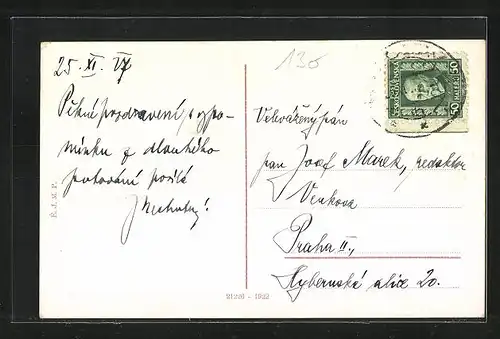 25. XI. 27
Pěkný pozdravení, vzpo-
mínku z dlouhého
putování posílá
130
ČESKOSLOVENSKÁ
50
50
Velevážený pán
pan Josef Marek, redaktor
Venkova
Praha II.,
Hybernská ulice 20.
21270 - 1922